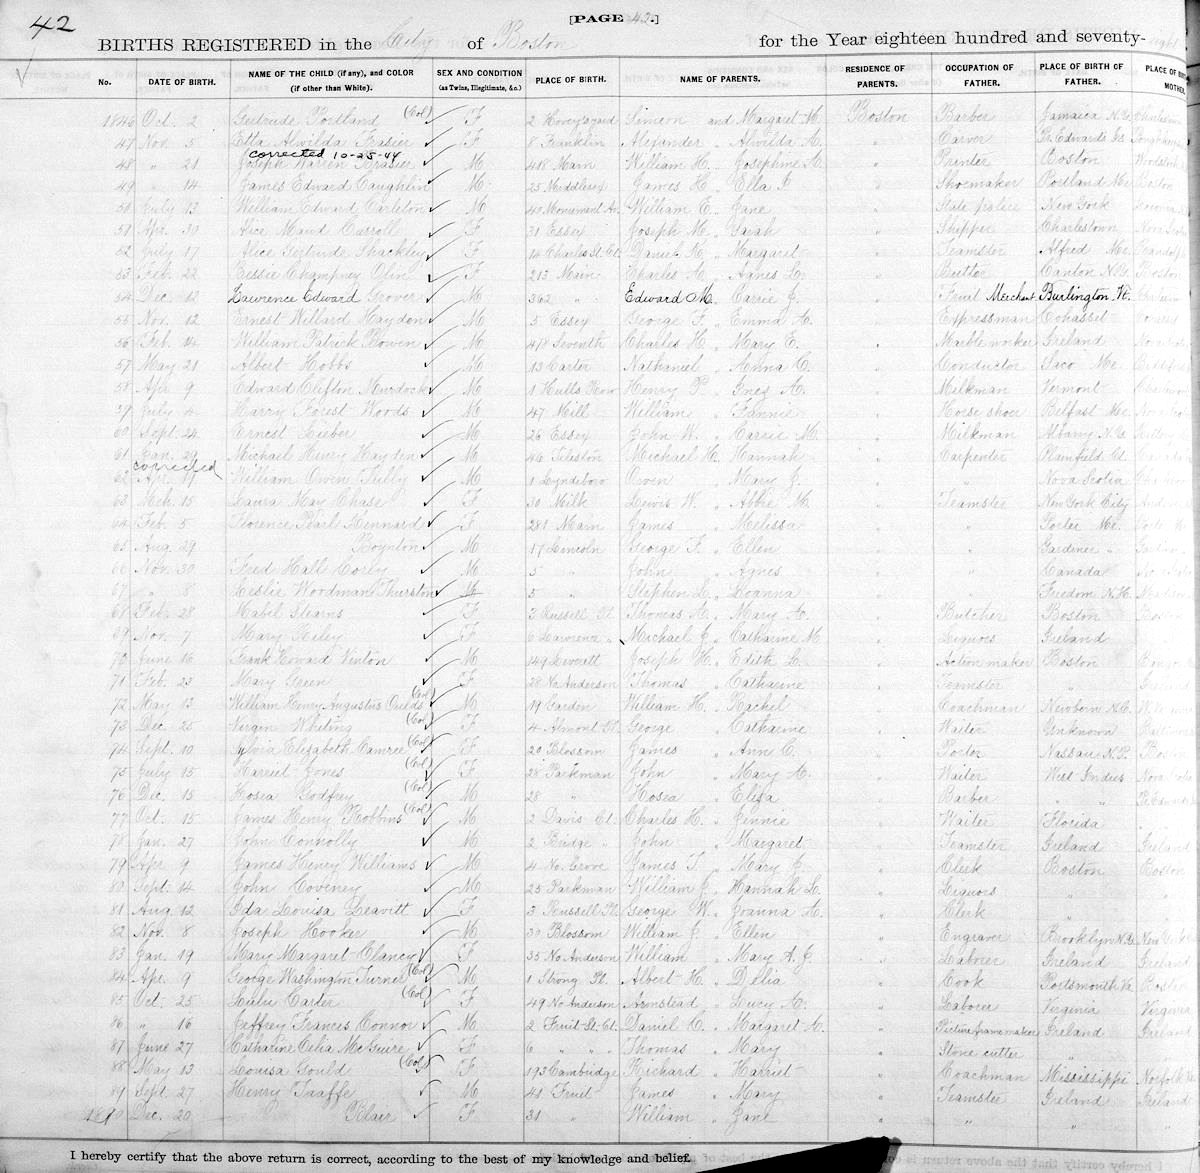 42
[PAGE 42.]
BIRTHS REGISTERED in the City of Boston for the Year eighteen hundred and seventy-eight
No. DATE OF BIRTH. NAME OF THE CHILD (if any), and COLOR (if other than White). SEX AND CONDITION (as Twins, Illegitimate, &c.) PLACE OF BIRTH. NAME OF PARENTS. RESIDENCE OF PARENTS. OCCUPATION OF FATHER. PLACE OF BIRTH OF FATHER. PLACE OF BIRTH MOTHER.
1846 Oct. 2 Gertrude Portland (Col) F 2 Simeon and Margaret M. Boston Barber Jamaica
47 Nov. 5 Etta Alwilda Frasier F 8 Franklin Alexander " Alwilda A. " Carver Pr. Edwards Is.
corrected 10-25-44
48 " 21 Joseph Warren Frasier M 418 Main William H. " Josephine A. " Printer Boston
49 " 14 James Edward Coughlin M 25 James H. " Ella " Shoemaker Portland Me. Boston
50 July 13 William Edward Carleton M 40 Monument Av. William E. " Jane " State police New York
51 Apr. 30 Alice Maud Carroll F 31 Essex Joseph M. " Sarah " Shipper Charlestown Nova Scotia
52 July 17 Alice Gertrude Shackley F 14 Charles St. Ct. Daniel H. " Margaret " Teamster Alfred Me.
53 Feb. 22 Bessie Champney Olin F 213 Main Charles A. " Agnes L. " Butter Canton N.Y. Boston
54 Dec. 12 Lawrence Edward Grover M 362 " Edward M. " Carrie J. " Fruit Merchant Burlington Vt.
55 Nov. 12 Ernest Willard Hayden M 5 Essex George F. " Emma A. " Expressman Cohasset
56 Feb. 14 William Patrick Bowen M 418 Seventh Charles H. " Mary E. " Marble worker Ireland
57 May 21 Albert Hobbs M 13 Carter Nathaniel " Anna C. " Conductor Saco Me.
58 Apr. 9 Edward Clifton Murdock M 1 Hulls Row Henry P. " Inez A. " Milkman Vermont
59 July 4 Harry Forest Woods M 47 Mill William " Fannie " Horse shoer Belfast Me.
60 Sept. 24 Ernest Lieber M 26 Essex John W. " Carrie M. " Milkman Albany N.Y.
61 Jan. 29 Michael Henry Hayden M 46 Tileston Michael H. " Hannah " Carpenter Plainfield Ct.
corrected
62 Apr. 19 William Owen Tully M 1 Lyndeboro Owen " Mary J. " " Nova Scotia
63 Mch. 15 Laura May Chase F 30 Milk Lewis W. " Abbie M. " Teamster New York City
64 Feb. 5 Florence Pearl Kennard F 281 Main James " Melissa " " Porter Me.
65 Aug. 29 Boynton M 17 Lincoln George F. " Ellen " " Gardiner "
66 Nov. 30 Fred Hall Corey M 5 " John " Agnes " " Canada
67 " 8 Leslie Woodman Thurston M 5 " Stephen L. " Loanna " Freedom N.H.
68 Feb. 28 Mabel Stearns F 3 Russell Pl. Thomas A. " Mary A. " Butcher Boston Boston
69 Nov. 7 Mary Haley F 6 Lawrence " Michael J. " Catharine M. " Liquors Ireland "
70 June 16 Frank Howard Vinton M 149 Leverett Joseph H. " Edith L. " Action maker Boston
71 Feb. 23 Mary Green F 28 No Anderson Thomas " Catharine " Teamster " Ireland
72 May 13 William Henry Augustus Oulds (Col) M 19 Garden William H. " Rachel " Coachman Newbern N.C.
73 Dec. 25 Virgin Whiting (Col) F 4 Almont St. George " Catharine " Waiter Unknown
74 Sept. 10 Sylvia Elizabeth Camree (Col) F 20 Blossom James " Anne C. " Porter Nassau N.P. Boston
75 July 15 Harriet Jones (Col) F 28 Parkman John " Mary A. " Waiter West Indies
76 Dec. 15 Hosea Godfrey (Col) M 28 " Hosea " Eliza " Barber " "
77 Oct. 15 James Henry Robbins (Col) M 2 Davis Ct. Charles H. " Jennie " Waiter Florida "
78 Jan. 27 John Connolly M 2 Bridge " John " Margaret " Teamster Ireland Ireland
79 Apr. 9 James Henry Williams M 4 No. Grove James T. " Mary J. " Clerk Boston Boston
80 Sept. 14 John Coviney M 25 Parkman William J. " Hannah L. " Liquors " "
81 Aug. 12 Ida Louisa Leavitt F 3 Russell Pl. George W. " Joanna A. " Clerk " "
82 Nov. 8 Joseph Hooker M 30 Blossom William J. " Ellen " Engraver Brooklyn N.Y.
83 Jan. 19 Mary Margaret Clancy F 35 No. Anderson William " Mary A. J. " Laborer Ireland Ireland
84 Apr. 9 George Washington Turner (Col) M 1 Strong Pl. Albert H. " Delia " Cook Portsmouth Va. Boston
85 Oct. 25 Lulu Carter (Col) F 49 No Anderson Armstead " Lucy A. " Laborer Virginia Virginia
86 " 16 Jeffrey Frances Connor M 2 Fruit St. Ct. Daniel C. " Margaret A. " Picture frame maker Ireland Ireland
87 June 27 Catharine Celia McGuire F 6 " " " Thomas " Mary " Stone cutter " "
88 May 13 Louisa Gould (Col) F 193 Cambridge Richard " Harriet " Coachman Mississippi Norfolk Va.
89 Sept. 27 Henry Taaffe M 41 Fruit James " Mary " Teamster Ireland Ireland
1890 Dec. 20 Blair F 31 " William " Jane " " " "
I hereby certify that the above return is correct, according to the best of my knowledge and belief.